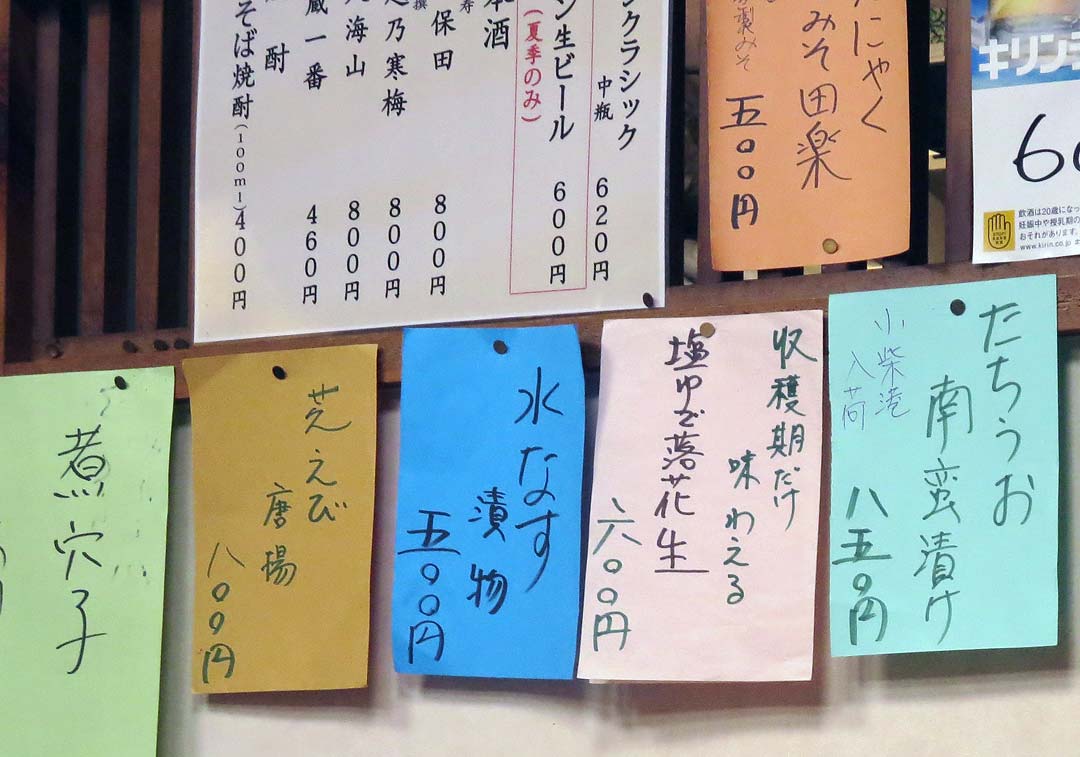 ンクラシック 中瓶 620円
ン生ビール 600円
(夏季のみ)
本酒
保田 800円
乃寒梅 800円
海山 800円
蔵一番 460円
酎
そば焼酎(100ml)400円
にゃく
みそ田楽
製みそ
五〇〇円
キリン
6
飲酒は20歳になっ
妊娠中や授乳期の
おそれがあります。
www.kirin.co.jp
たちうお
南蛮漬け
小柴港
入荷
八五〇円
収穫期だけ
味わえる
塩ゆで落花生
六〇〇円
水なす
漬物
五〇〇円
芝えび
唐揚
八〇〇円
煮穴子